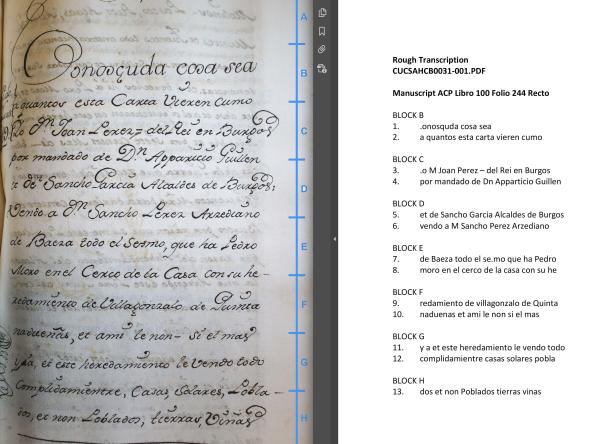 Conosçuda cosa sea
a quantos esta Carta Vieren cumo
Dn Joan Perez = del Rei en Burgos
por mandado de Dn Apparicio Guillen
et de Sancho Garcia Alcaldes de Burgos:
Vendo a Dn Sancho Perez Arzediano
de Baeza todo el Sesmo, que ha Pedro
Moro en el Cerco de la Casa con su he-
redamiento de Villagonzalo de Quinta
nadueñas, et ami le non- Si el mas
et este heredamiento le Vendo todo
Complidamientre, Casas, Solares, Pobla-
dos, et non Poblados, tierras Viñas
A
B
C
D
E
F
G
H
Rough Transcription
CUCSAHCB0031-001.PDF
Manuscript ACP Libro 100 Folio 244 Recto
BLOCK B
1. .onosquda cosa sea
2. a quantos esta carta vieren cumo
BLOCK C
3. .o M Joan Perez – del Rei en Burgos
4. por mandado de Dn Apparticio Guillen
BLOCK D
5. et de Sancho Garcia Alcaldes de Burgos
6. vendo a M Sancho Perez Arzediano
BLOCK E
7. de Baeza todo el se.mo que ha Pedro
8. moro en el cerco de la casa con su he
BLOCK F
9. redamiento de villagonzalo de Quinta
10. naduenas et ami le non si el mas
BLOCK G
11. y a et este heredamiento le vendo todo
12. complidamientre casas solares pobla
BLOCK H
13. dos et non Poblados tierras vinas